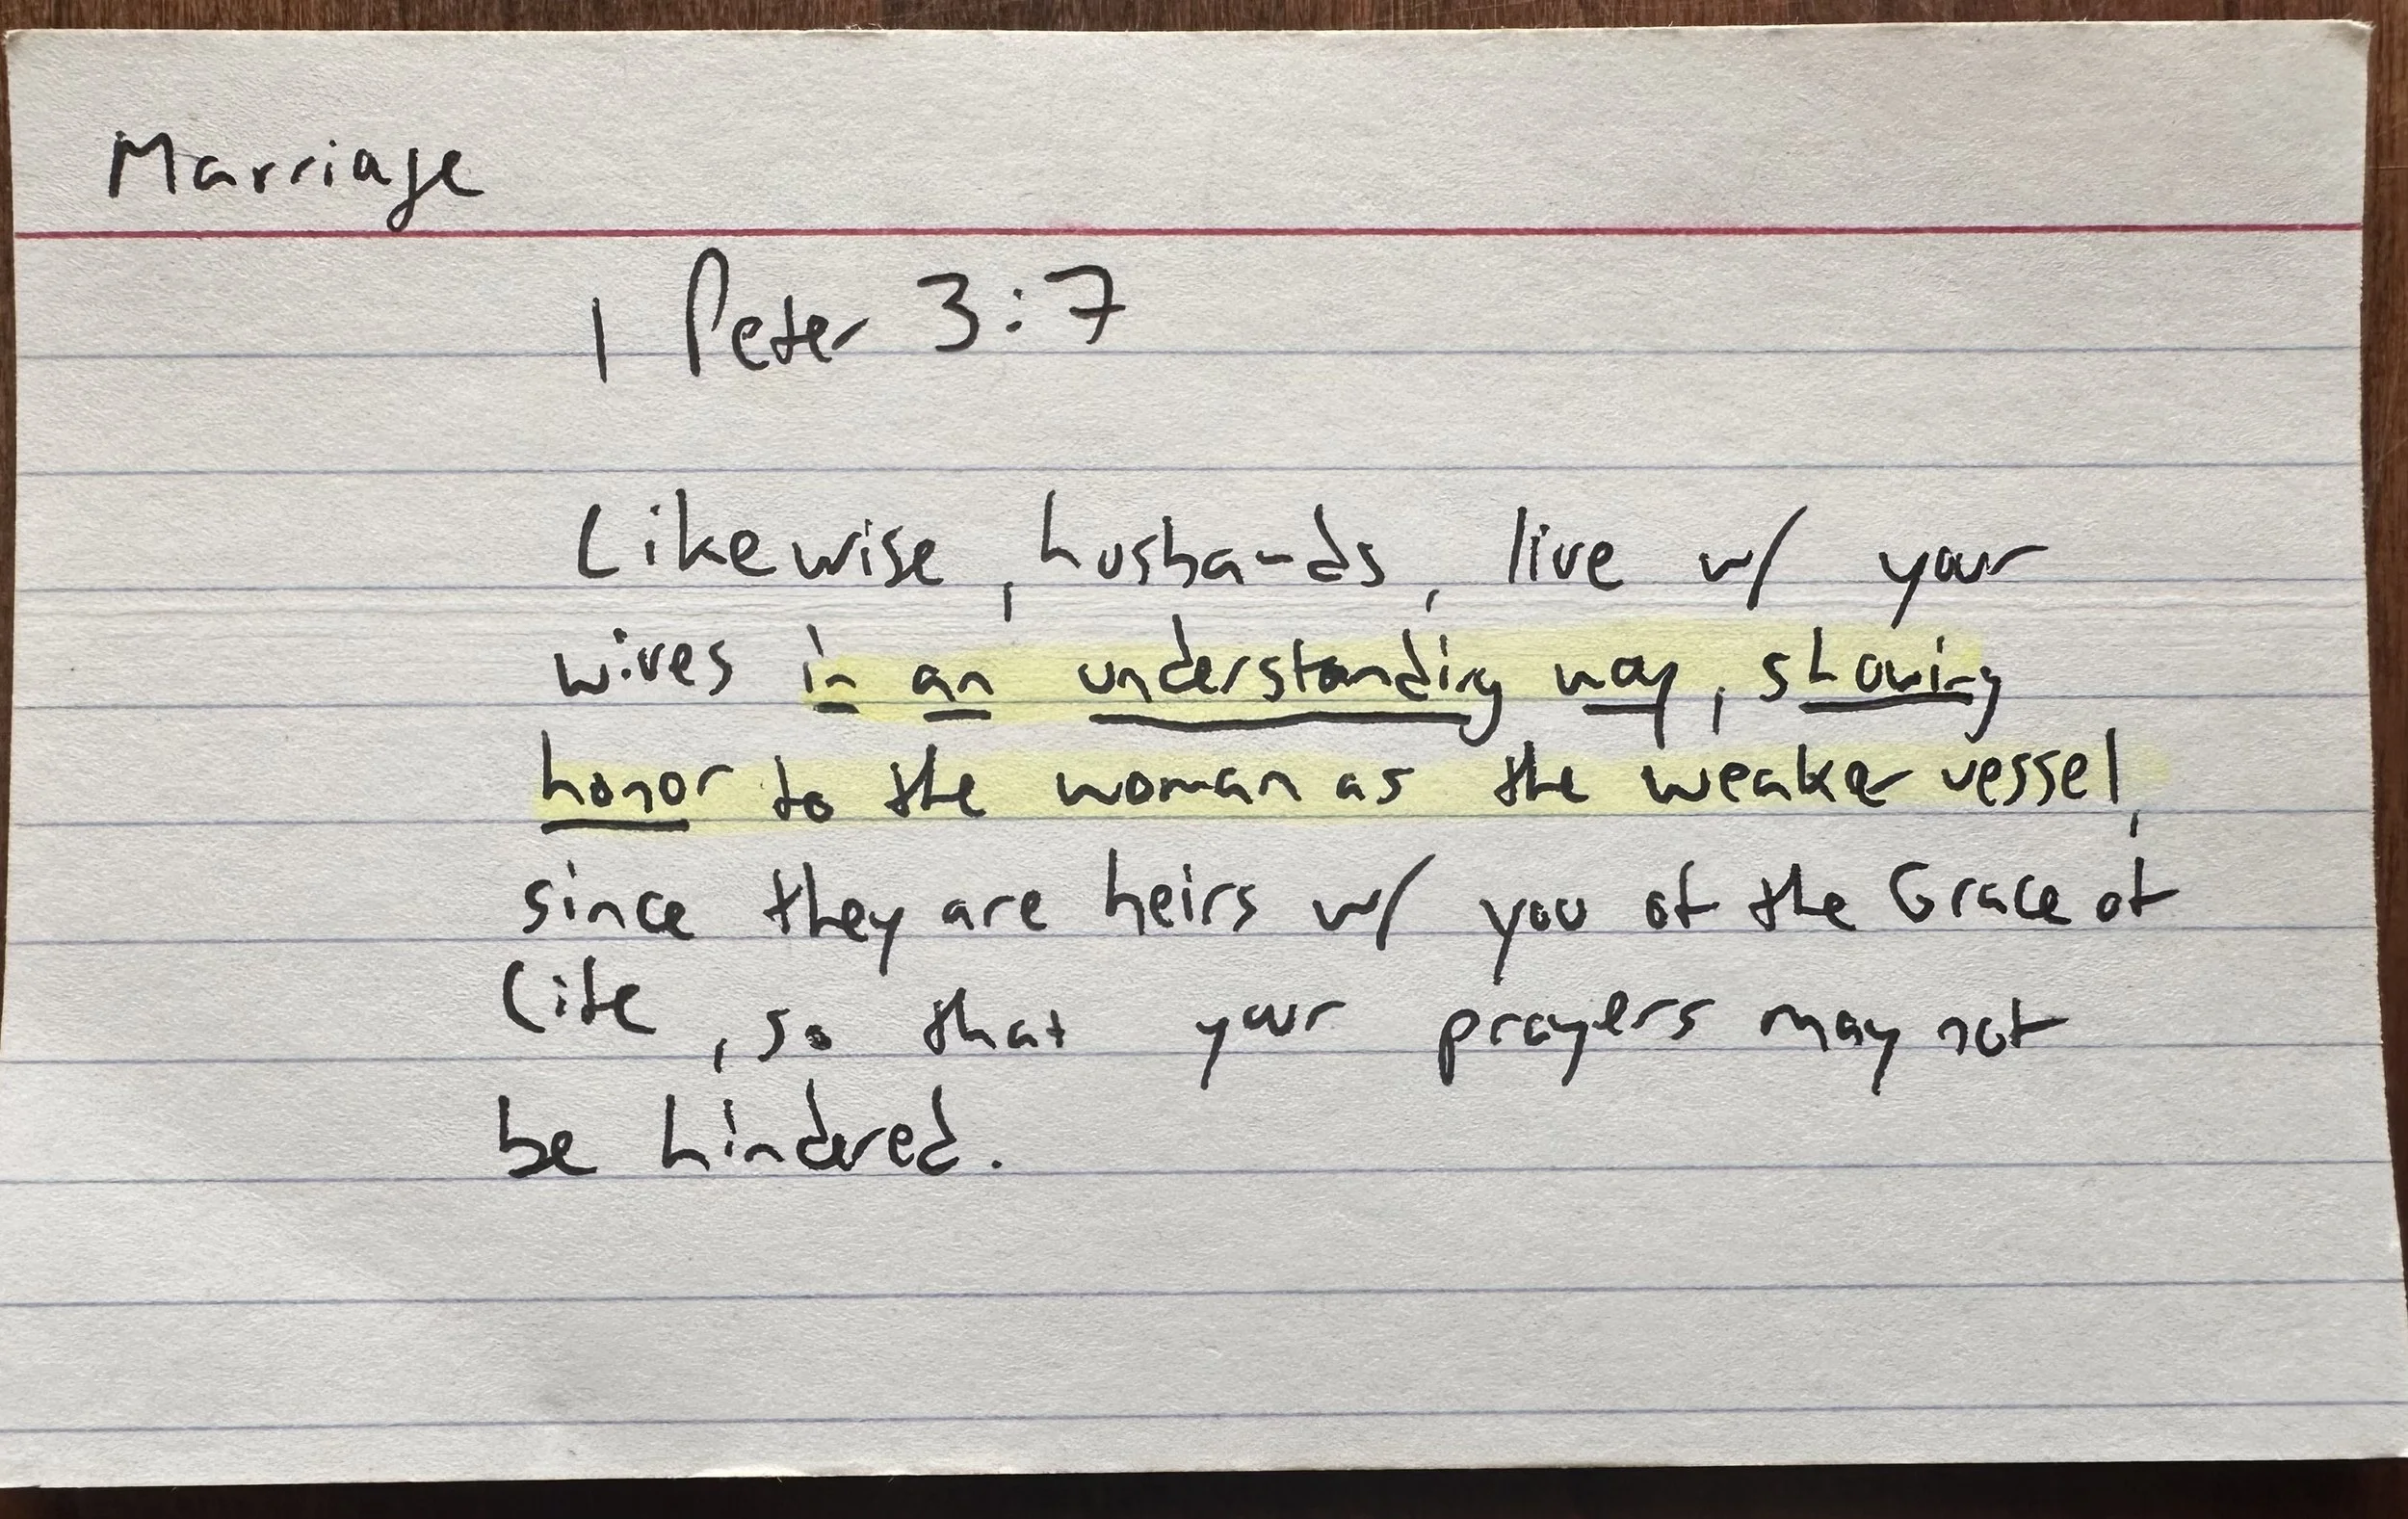 Marriage
1 Peter 3:7
Likewise, husbands, live w/ your
wives in an understanding way, showing
honor to the woman as the weaker vessel,
since they are heirs w/ you of the Grace of
life, so that your prayers may not
be hindered.